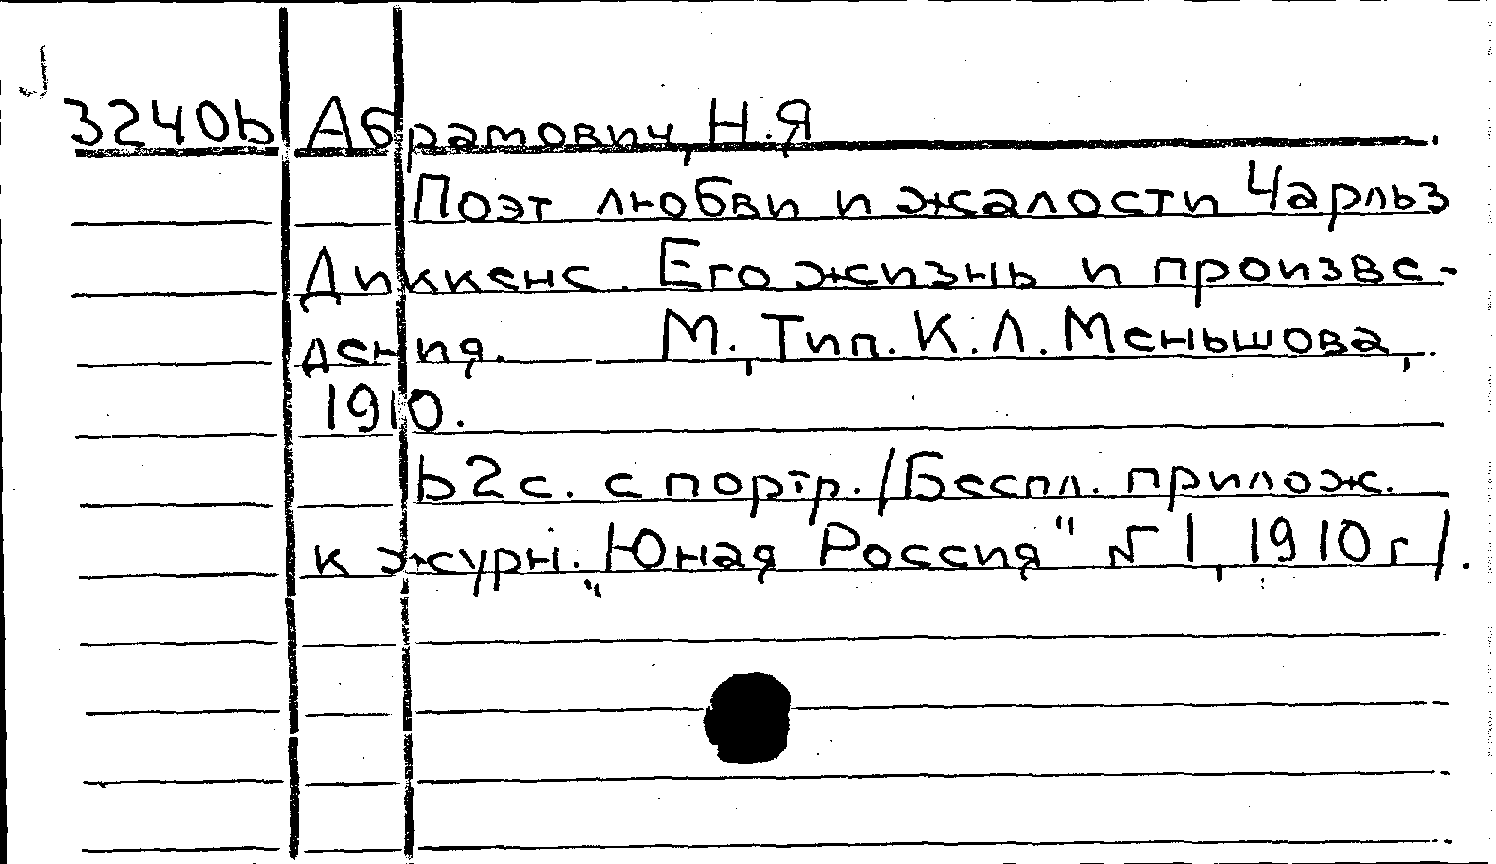 32406 Абрамович, Н.Я
Поэт любви и жалости Чарльз
Диккенс. Его жизнь и произве-
дения. М., Тип. К.Л. Меньшова,
1910.
62 с. с портр. /Беспл. прилож.
к журн. „Юная Россия" № 1, 1910 г/.